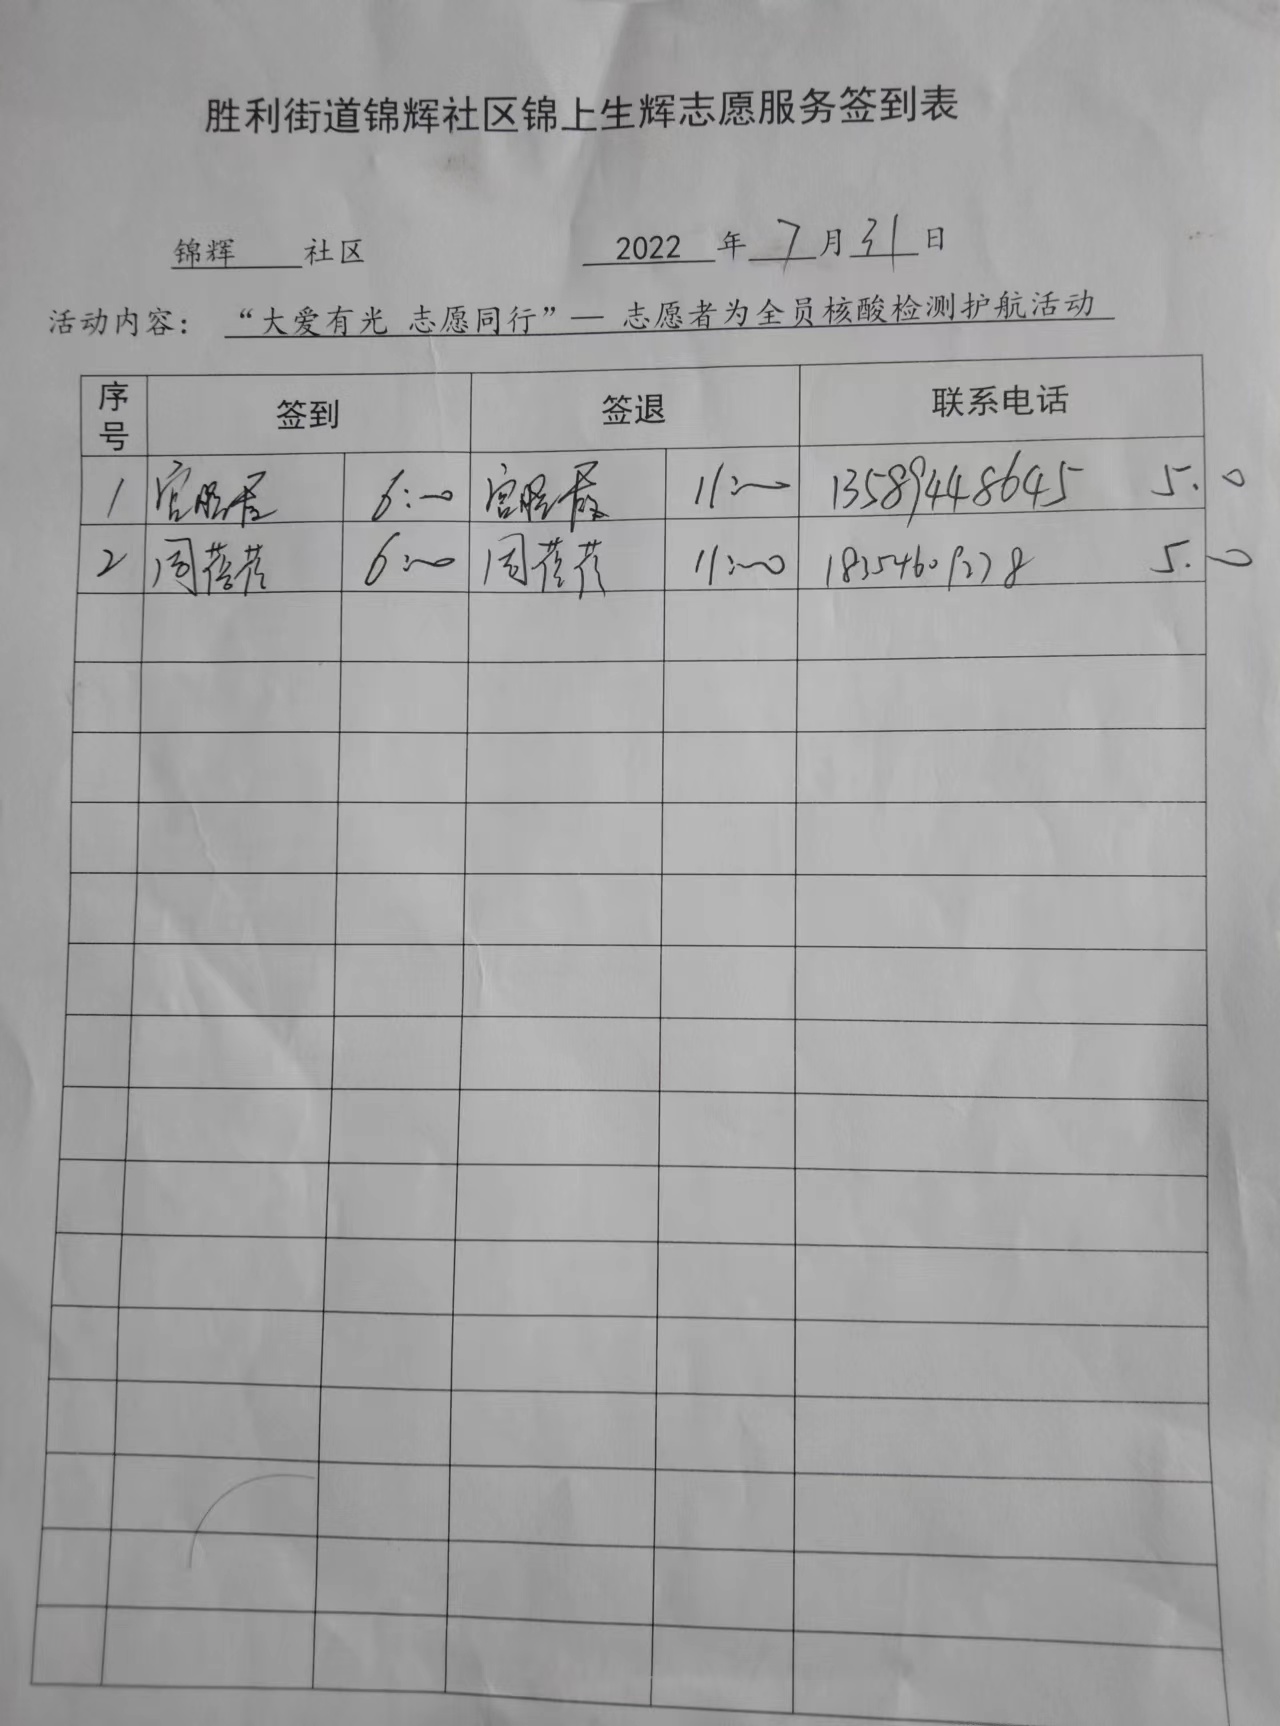 胜利街道锦辉社区锦上生辉志愿服务签到表
锦辉 社区 2022 年 7 月 31 日
活动内容： “大爱有光 志愿同行”— 志愿者为全员核酸检测护航活动
序号 签到 签退 联系电话
1 宫胜 6:00 宫胜 11:00 13589448645 5.0
2 周蓓蓓 6:00 周蓓蓓 11:00 5.0